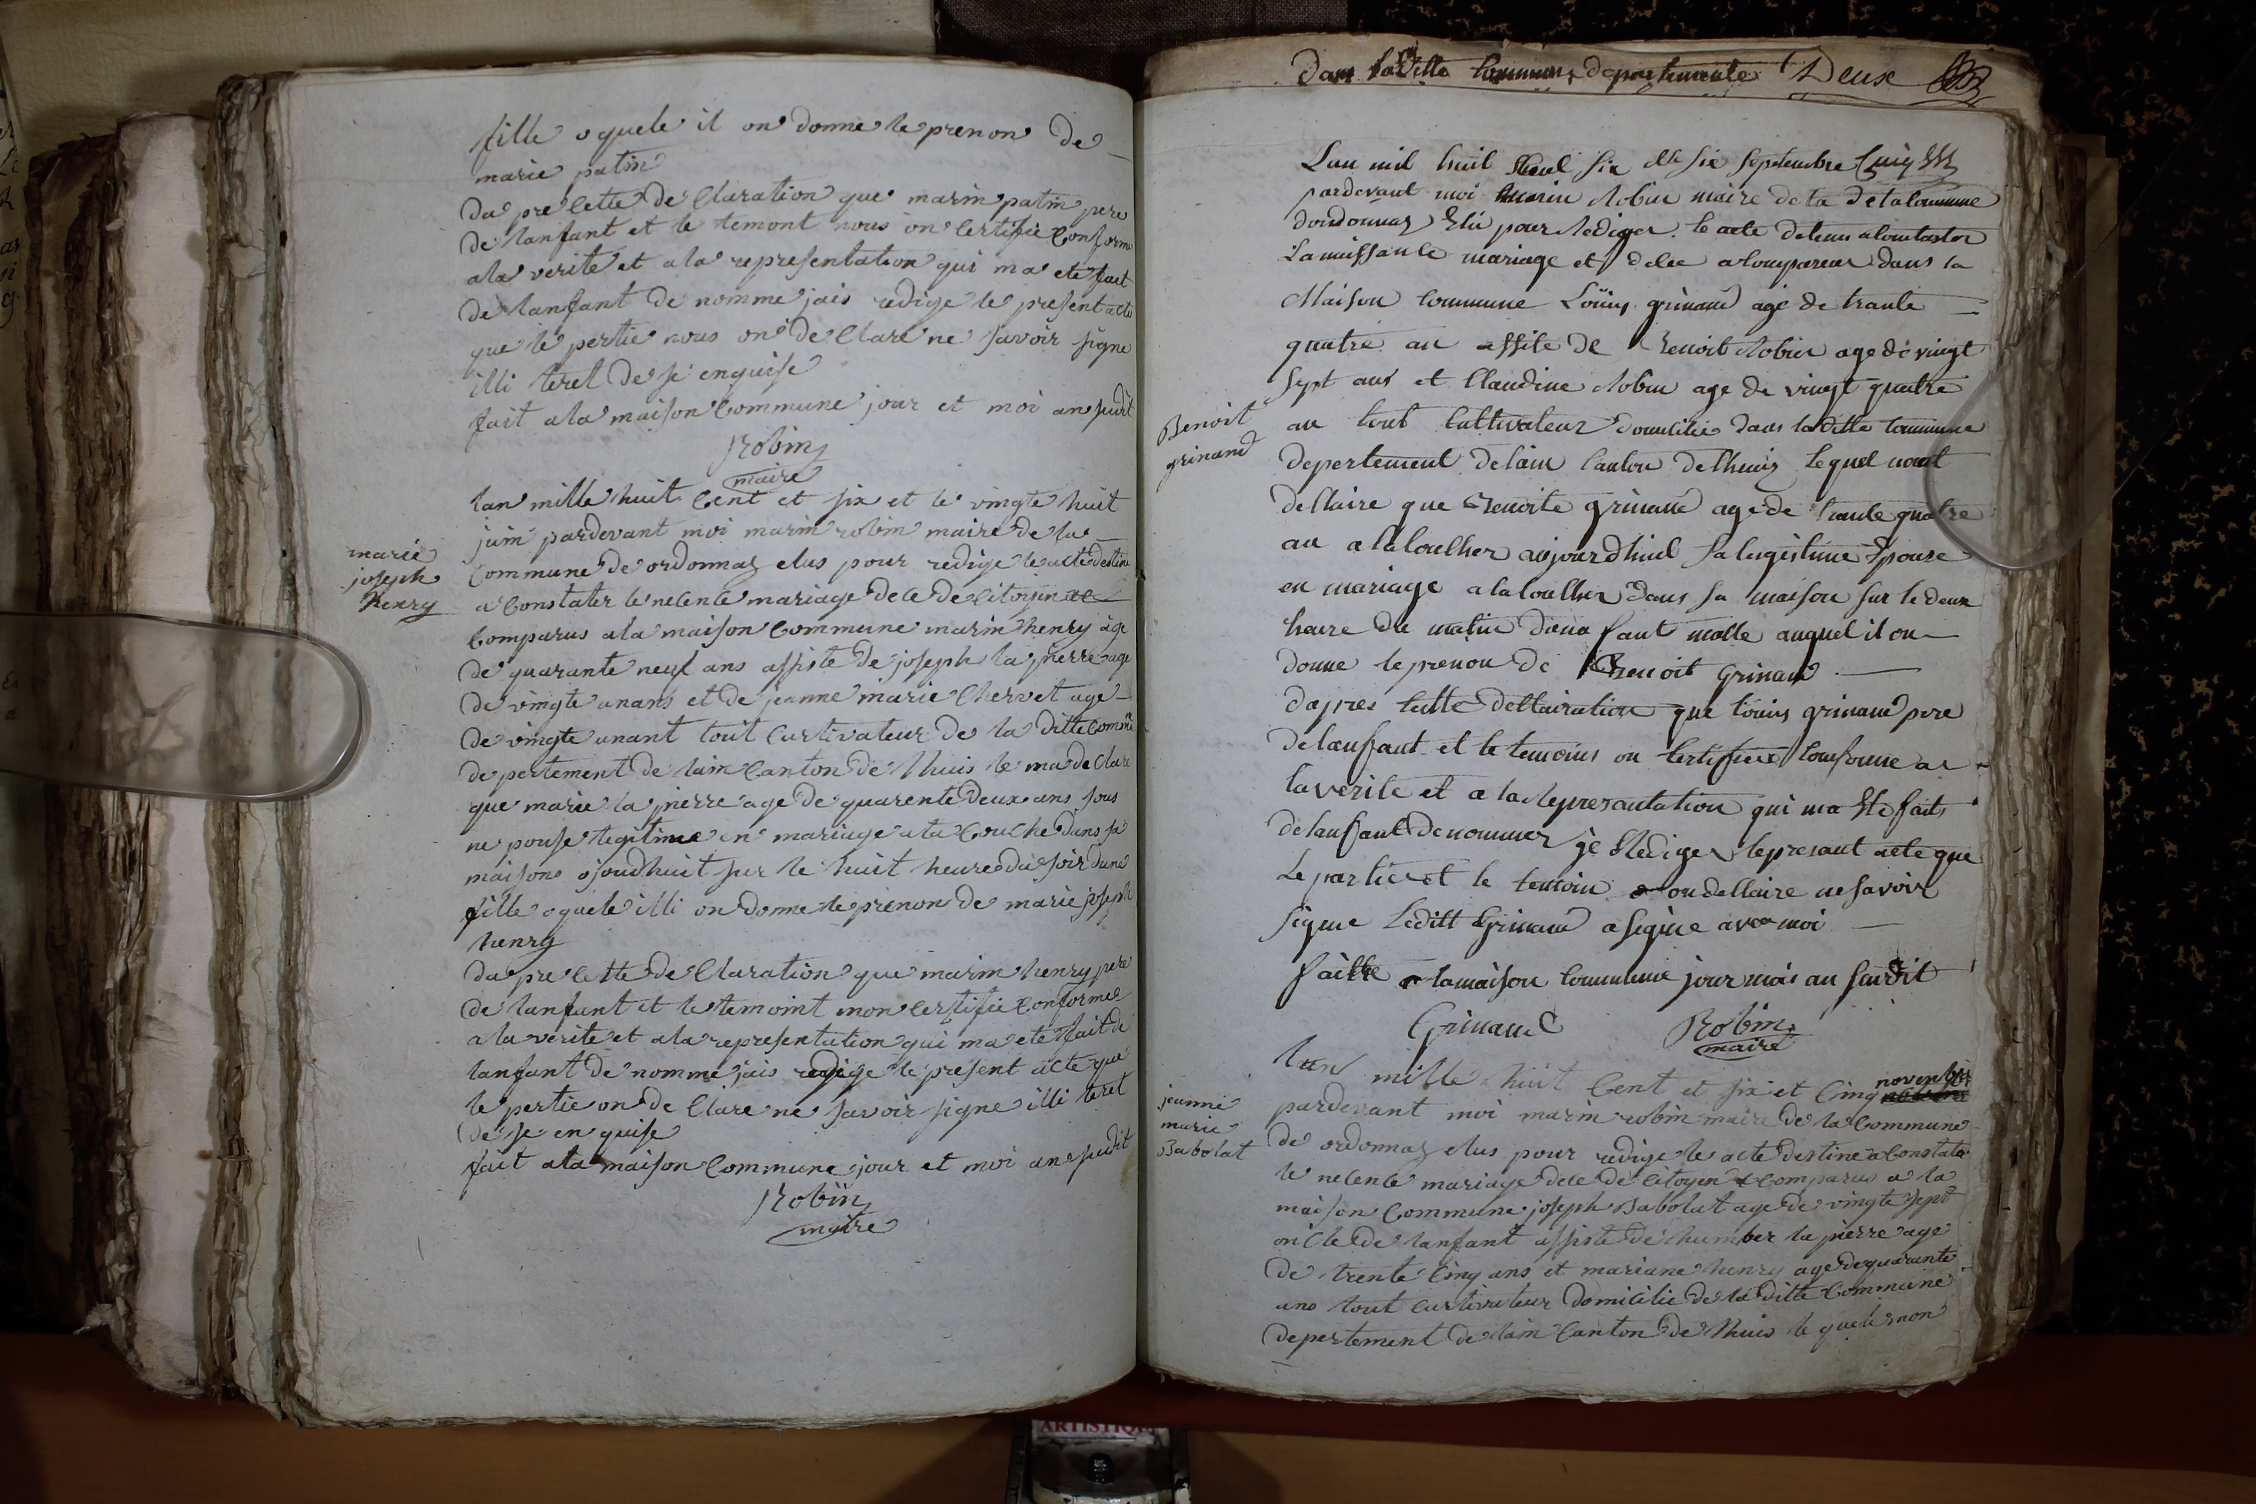 fille oquele il on donne le prenon de
marie patin
da pre cette de Claration que marin patin pere
de lanfant et le temont nous on Certifie Conforme
a la verite et a la representation qui ma ete fait
de lanfant de nomme jais redige le present acte
que le pertie nous on de Clare ne savoir signe
illi terel de se enquise
fait a la maison Commune jour et moi an sudit
Robin
maire
marie
joseph
henry
lan mille huit Cent et six et le vingte huit
juin pardevant moi marin robin maire de la
Commune de ordonnaz elus pour redige le acte destine
a Constater le nesence mariage dece de citoyin
Comparus a la maison Commune marin henry age
de quarante neuf ans assiste de joseph la pierre age
de vingte unans et de jeanne marie Chervet age
de vingte unant tout Curtivateur de la ditte Comune
depertement de lain Canton de lhuis le ma de Clare
que marie la pierre age de quarente deux ans sous
ne pouse legitime en mariage a la Couche dans sa
maison ojourdhuit sur le huit heure du soir dune
fille oquele illi on donne le prenon de marie joseph
henry
da pre cette de Claration que marin henry pere
de lanfant et le temoint mon Certifie Conforme
a la verite et a la representation qui ma ete fait de
lanfant de nomme jais redige le present acte que
le pertie on de Clare ne savoir signe illi terel
de se en quise
fait a la maison Commune jour et moi an sudit
Robin
maire
Dans la ditte Commune departemente Deux
Lan mil huit six six septembre
pardevant moi Marin Robin maire de la de la Commune
dordonnaz Elu pour Rediger le acte detenu a Contaster
La naissance mariage et dece a Compareur dans la
Maison Commune Loüis grinand age de trante
quatre an assite de Benoit Robin age de vingt
sept ans et Claudine Robin age de vingt quatre
Benoit
grinand
an tout Cultivateur Domicilie dans la ditte Commune
depertement de lain Canton de lhuis Lequel nout
dellaire que Benoite grinand age de trante quatre
an a la Coucher aujourdhiul sa legistime Epouse
en mariage a la Coucher dans sa maison sur le deux
heure du matin dun anfant malle auquel il on
donne le prenon de Benoit Grinand
dapres Cette dellairation que Loüis grinand pere
de lanfant et le temoins on Certifiér Conforme a
la verite et a la Represantation qui ma Ete fait
de lanfant denommer jé Rediger le presant acte que
Le partie et le temoin on dellaire ne savoir
signe Leditt Grinand a signe avec moi
faitte a la maison Commune jour mois an susdit
Grinand Robin
maire
jeanne
marie
Babolat
lan mille huit Cent et six et Cinq novenbre
pardevant moi marin robin maire de la Commune
de ordonnaz elus pour redige le acte destine a Constater
le nesence mariage dece de Citoyen Comparus a la
maison Commune joseph Babolat age de vingte sept
oncle de lanfant assiste de humber la pierre age
de trente Cinq ans et mariane henry age de quarante
ans tout Curtivateur domicilie de la ditte Commune
depertement de lain Canton de lhuis le quele non
ARTISTIQUE